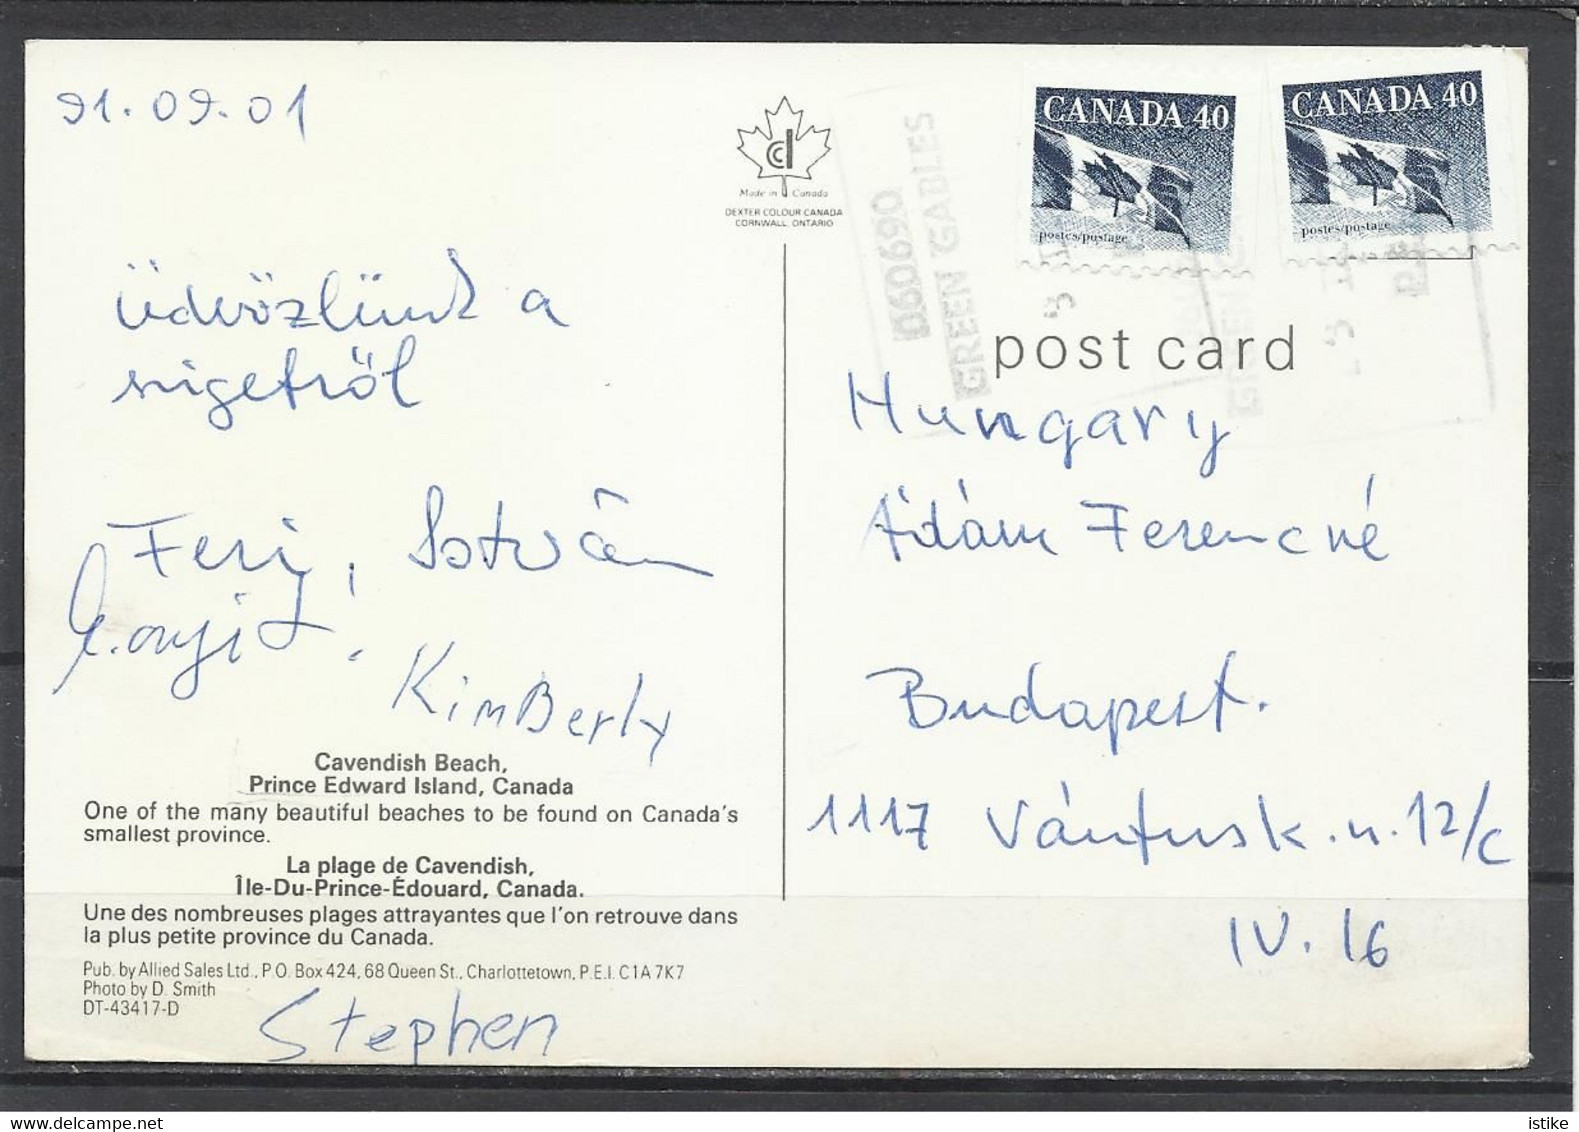 91.09.01
Made in Canada
DEXTER COLOUR CANADA
CORNWALL, ONTARIO
CANADA 40
postes/postage
CANADA 40
postes/postage
060690
GREEN GABLES
üdvözlünk a
szigetről
Feri, István
Kimberly
Stephen
Cavendish Beach,
Prince Edward Island, Canada
One of the many beautiful beaches to be found on Canada's
smallest province.
La plage de Cavendish,
Île-Du-Prince-Édouard, Canada.
Une des nombreuses plages attrayantes que l'on retrouve dans
la plus petite province du Canada.
Pub. by Allied Sales Ltd., P.O. Box 424, 68 Queen St., Charlottetown, P.E.I. C1A 7K7
Photo by D. Smith
DT-43417-D
post card
Hungary
Ádám Ferencné
Budapest.
1117 Vántus k. u. 12/c
IV. 16
istike